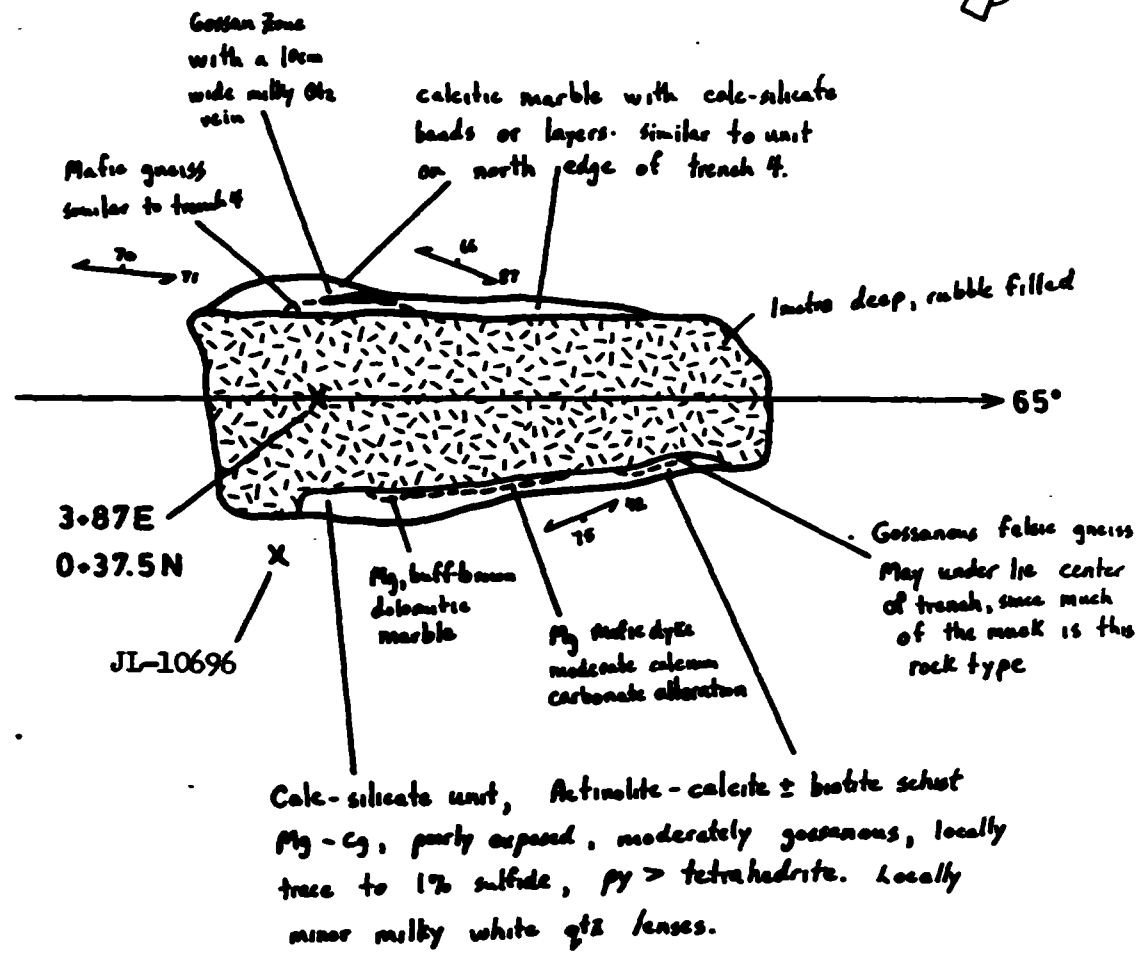 Gossan Zone
with a 10cm
wide milky Qtz
vein
calcitic marble with calc-silicate
bands or layers. similar to unit
on north edge of trench 4.
Mafic gneiss
similar to trench 4
70
71
66
87
1metre deep, rubble filled
65°
3+87E
0+37.5N
JL-10696
42
75
Mg, buff-brown
dolomitic
marble
Mg mafic dyke
moderate calcium
carbonate alteration
Gossanous felsic gneiss
May under lie center
of trench, since much
of the muck is this
rock type
Calc-silicate unit, Actinolite-calcite ± biotite schist
Mg-cg, poorly exposed, moderately gossanous, locally
trace to 1% sulfide, py > tetrahedrite. Locally
minor milky white qtz lenses.